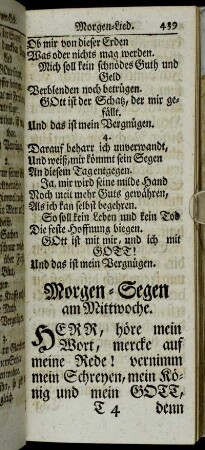 Morgen-Lied. 439
Ob mir von dieser Erden
Was oder nichts mag werden.
Mich soll kein schnödes Guth und
Geld
Verblenden noch betrügen.
GOtt ist der Schatz, der mir ge-
fällt.
Und das ist mein Vergnügen.
4.
Darauf beharr ich unverwandt,
Und weiß, mir kömmt sein Segen
An diesem Tag entgegen.
Ja, mir wird seine milde Hand
Noch weit mehr Guts gewähren,
Als ich kan selbst begehren.
So soll kein Leben und kein Tod
Die feste Hoffnung biegen.
GOtt ist mit mir, und ich mit
GOTT!
Und das ist mein Vergnügen.
Morgen-Segen
am Mittwoche.
HERR, höre mein
Wort, mercke auf
meine Rede! vernimm
mein Schreyen, mein Kö-
nig und mein GOTT,
T 4 denn